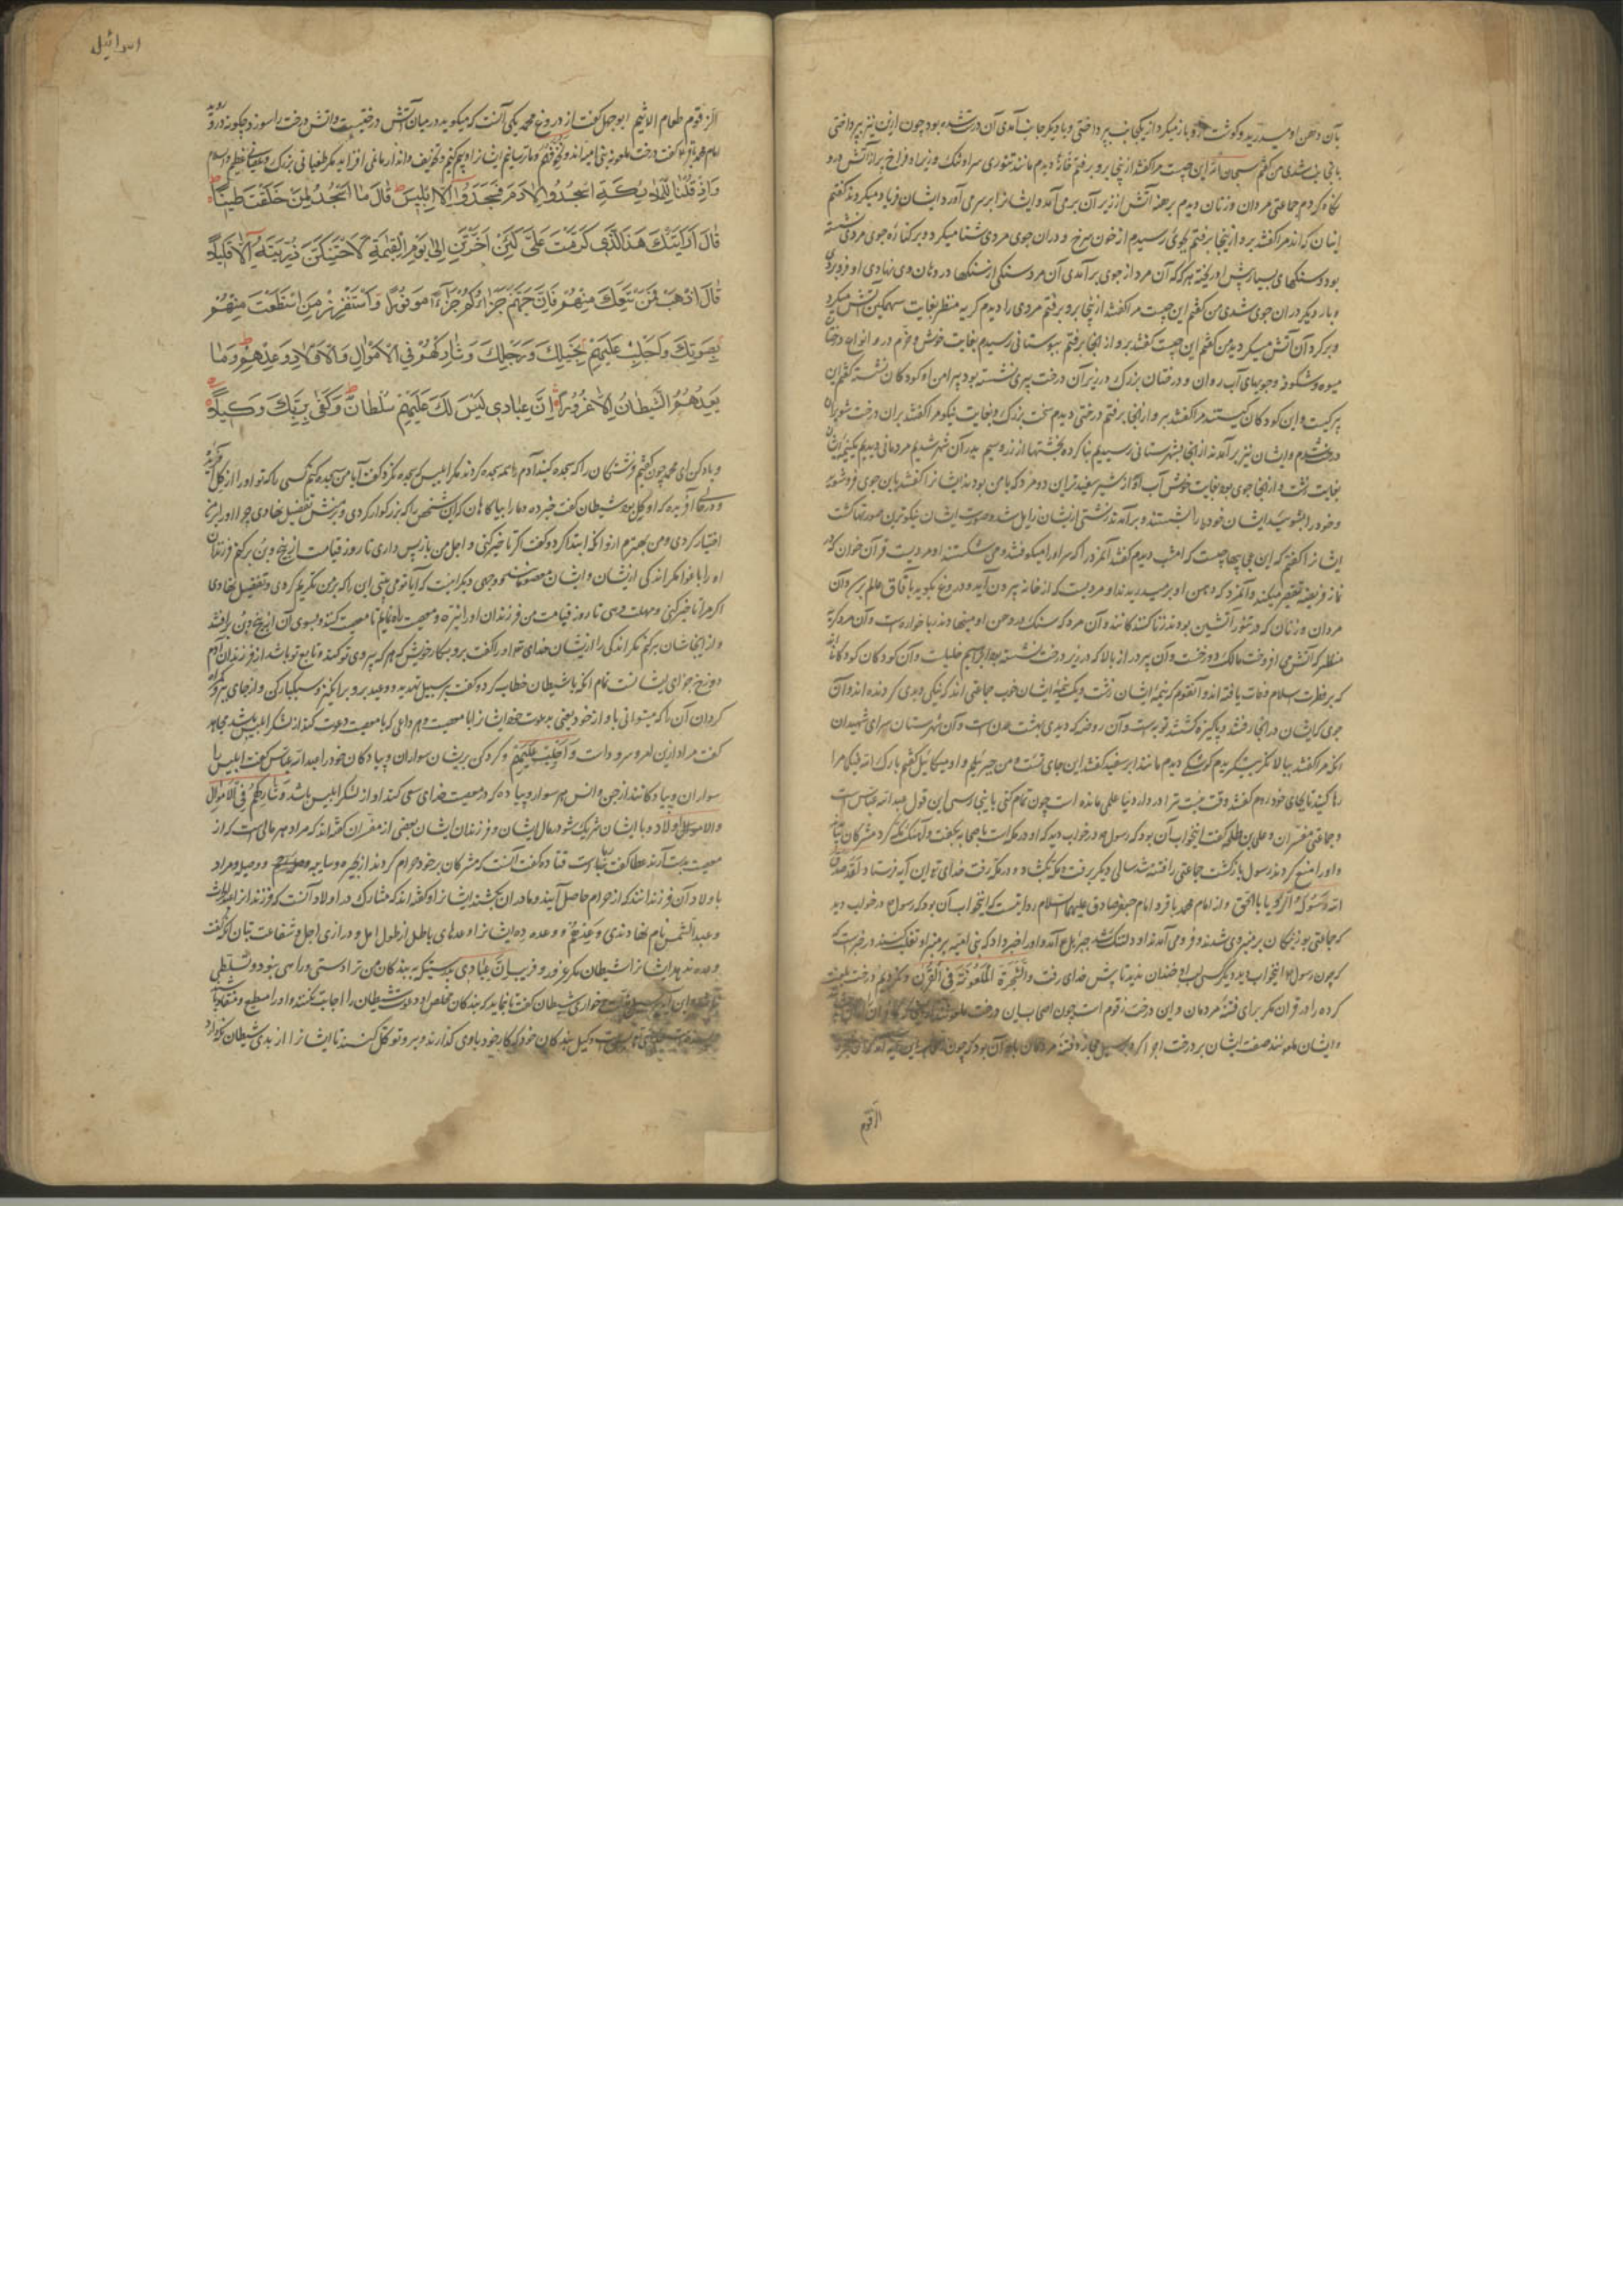 بآن دهن او میدرید و گوشت و باز میکرد از یکجانب پرداختی و با دیگر جانب آمدی آن درست شده بود چون ازین نیز بپرداختی
بآنجانب شدی من گفتم سبحان الله این چیست مرا گفتند ازینجا برو برفتم خانۀ دیدم مانند تنوری سر او تنک و زیر او فراخ پر از آتش درو
نگاه کردم جماعتی مردان و زنان دیدم برهنه آتش از زیر آن برمی آمد و ایشانرا بر سر می آورد و ایشان فریاد میکردند گفتم
اینان که اند مرا گفتند برو ازینجا برفتم بجوئی رسیدم از خون سرخ و در آن جوی مردی شنا میکرد و بر کناره جوی مردی نشسته
بود و سنگهای بسیار پیش او ریخته هر گه که آن مرد از جوی برآمدی آن مرد سنگی از سنگها در دهان وی نهادی او فرو بردی
و بار دیگر در آن جوی شدی من گفتم این چیست مرا گفتند ازینجا برو برفتم مردی را دیدم کریه منظر بغایت سهمگین آتش میکرد
و بر گرد آن آتش میگردید من گفتم این چیست گفتند برو از اینجا برفتم ببوستانی رسیدم بغایت خوش و خرم در و انواع درختان
میوه و شکوفه و جویهای آب روان و درختان بزرگ در زیر آن درخت پیری نشسته بود پیرامن او کودکان نشسته گفتم این
پیر کیست و این کودکان کیستند مرا گفتند برو از اینجا برفتم درختی دیدم سخت بزرگ و بغایت نیکو مرا گفتند بر آن درخت شو بر آن
درخت شدم و ایشان نیز برآمدند از اینجا بشهرستانی رسیدیم بنا کرده بخشتها از زر و سیم بدر آن شهر شدیم مردمانی دیدیم یک نیمه ایشان
بغایت زشت و از اینجا جوی بود بغایت خوش آب او از شیر سفیدتر این دو مرد که با من بودند ایشانرا گفتند باین جوی فرو شوید
و خود را بشوئید ایشان خود را بشستند و برآمدند زشتی از ایشان زایل شده و صورت ایشان نیکوترین صورتها گشت
ایشانرا گفتم که این عجایبها چیست که امشب دیدم گفتند آنمرد را که سر او را میکوفتند و می شکستند او مردیست قرآن خوان که در
نماز فریضه تقصیر میکند و آنمرد که دهن او بر میدریدند او مردیست که از خانه بیرون آید و دروغ بگوید بآفاق عالم برسد و آن
مردان و زنان که در تنور آتشین بودند زنا کنندگانند و آن مرد که سنگ در دهن او مینهادند ربا خواره است و آن مرد کریه
منظر که آتش می افروخت مالک دوزخست و آن پیر دراز بالا که در زیر درخت نشسته بود ابراهیم خلیلست و آن کودکان کودکانند
که بر فطرت سلام وفات یافته اند و آنقوم که نیمۀ ایشان زشت و یک نیمۀ ایشان خوب جماعتی اند که نیکی و بدی کرده اند و آن
جوی که ایشان در آنجا رفتند و پاکیزه گشتند توبه است و آن روضه که دیدی بهشت عدن است و آن شهرستان سرای شهیدان
آنگه مرا گفتند ببالا نگر بنگریدم کوشکی دیدم مانند ابر سفید گفتند این جای تست و من جبرئیلم و او میکائیل گفتم بارک الله فیکما مرا
رها کنید تا بجای خود روم گفتند وقت نیست ترا در دار دنیا عملی مانده است چون تمام کنی باینجا رسی این قول عبدالله عباس است
و جماعتی مفسران و علی بن طلحه گفت اینخواب آن بود که رسول در خواب دید که او در مکه است
و او را منع کردند رسول بازگشت جماعتی را فتنه شد سالی دیگر برفت مکه بگشاد و در مکه رفت خدای تو این آیه فرستاد لقد صدق
الله رسوله الرؤیا بالحق و از امام محمد باقر و امام جعفر صادق علیهما السلام روایتست که اینخواب آن بود که رسول در خواب دید
که جماعتی بوزینگان بر منبر وی شدند و فرو می آمدند او دلتنگ شد جبرئیل آمد و او را خبر داد که بنی امیه بر منبر او تغلب کنند در خبر است
که چون رسول اینخواب دید دیگر کسی لب او خندان ندید تا پیش خدای رفت والشجرة الملعونة فی القرآن و نکردیم درخت لعنت
کرده را در قرآن مگر برای فتنۀ مردمان و این درخت زقوم است چون
و ایشان ملعونند صفت ایشان بر درخت اجرا کرد بر سبیل مجاز و فتنۀ مردمان باو آن بود که چون
الزقوم
اسرائیل
الزقوم طعام الاثیم ابوجهل گفت از دروغ محمد یکی آنست که میگوید در میان آتش درختیست و آتش درخت را سوزد چگونه درو روید
امام محمد باقر گفت درخت ملعونه بنی امیه اند و نخوفهم و ما ترسانیم ایشانرا و بیم کنیم و تخویف و انذار ما نمی افزاید مگر طغیانی بزرگ و عصیانی عظیم
وَاِذْ قُلْنَا لِلْمَلٰئِكَةِ اسْجُدُوا لِاٰدَمَ فَسَجَدُوا اِلَّا اِبْلِيسَ قَالَ ءَاَسْجُدُ لِمَنْ خَلَقْتَ طِينًا
قَالَ اَرَاَيْتَكَ هٰذَا الَّذِي كَرَّمْتَ عَلَيَّ لَئِنْ اَخَّرْتَنِ اِلٰى يَوْمِ الْقِيٰمَةِ لَاَحْتَنِكَنَّ ذُرِّيَّتَهُ اِلَّا قَلِيلًا
قَالَ اذْهَبْ فَمَنْ تَبِعَكَ مِنْهُمْ فَاِنَّ جَهَنَّمَ جَزَاؤُكُمْ جَزَاءً مَوْفُورًا وَاسْتَفْزِزْ مَنِ اسْتَطَعْتَ مِنْهُمْ
بِصَوْتِكَ وَاَجْلِبْ عَلَيْهِمْ بِخَيْلِكَ وَرَجِلِكَ وَشَارِكْهُمْ فِي الْاَمْوَالِ وَالْاَوْلَادِ وَعِدْهُمْ وَمَا
يَعِدُهُمُ الشَّيْطَانُ اِلَّا غُرُورًا اِنَّ عِبَادِي لَيْسَ لَكَ عَلَيْهِمْ سُلْطَانٌ وَكَفٰى بِرَبِّكَ وَكِيلًا
و یاد کن ای محمد چون گفتیم فرشتگان را که سجده کنید آدم را همه سجده کردند مگر ابلیس که سجده نکرد گفت آیا من سجده کنم کسی را که تو او را از گل آفریدۀ
و در حالی آفریده که او گل بود شیطان گفت خبر ده و ما را بیاگاهان که این شخص را که بزرگوار کردی و بر منش تفضیل نهادی چرا او را بر ما
اختیار کردی و من بهترم ازو آنگه ابتدا کرد و گفت اگر تاخیر کنی و اجل من باز پس داری تا روز قیامت از بیخ و بن برکنم فرزندان
او را باغوا مگر اندکی از ایشان و ایشان معصومانند و وجهی دیگر آنست که آیا تو می بینی این را که بر من تکریم کردی و تفضیل نهادی
اگر مرا تاخیر کنی و مهلت دهی تا روز قیامت من فرزندان او را
و از اینجاشان برکنم مگر اندکی را از ایشان خدای تعه او را گفت برو بسر کار خویش که هر که پیروی تو کند و تابع تو باشد از فرزندان آدم
دوزخ جزای ایشانست تمام آنگه با شیطان خطاب کرده گفت بر سبیل تهدید و وعید برو برانگیز و سبکبار کن و از جای ببر و گمراه
گردان آن را که میتوانی بآواز خود یعنی بدعوت خود ایشانرا با معصیت و هر داعی که با معصیت دعوت کند از لشکر ابلیس باشد مجاهد
گفت مراد ازین لهو و سرود است و اجلب علیهم و گرد کن بر ایشان سواران و پیادگان خود را عبدالله عباس گفت ابلیس را
سواران و پیادگانند از جن و انس هر سوار و پیاده که در معصیت خدای سعی کند او از لشکر ابلیس باشد و شارکهم فی الاموال
والاولاد و با ایشان شریک شو در مال ایشان و فرزندان ایشان بعضی از مفسران گفته اند که مراد هر مالی است که از
معصیت بدست آرند عطا گفت رباست قتاده گفت آنست که مشرکان بر خود حرام کردند از بحیره و سایبه و وصیله و مراد
باولاد آن فرزندانند که از حرام حاصل آیند و مادران بکشند ایشانرا و گفته اند که مشارکت در اولاد آنست که فرزندانرا عبدالحارث
و عبدالشمس نام نهادندی و عدهم و وعده ده ایشانرا وعدهای باطل از طول امل و درازی اجل و شفاعت بتان آنگه گفت
وعده ندهد ایشانرا شیطان مگر غرور و فریب ان عبادی بدرستی که بر بندگان من ترا دستی و راهی نبود و تسلطی
خواری شیطان گفت تا بنماید که بندگان مخلص او دعوت شیطان را اجابت نکنند و او را مطیع و منقاد
وکیل بندگان خود که کار خود باوی گذارند و برو توکل کنند تا ایشانرا از بدی شیطان نگه دارد